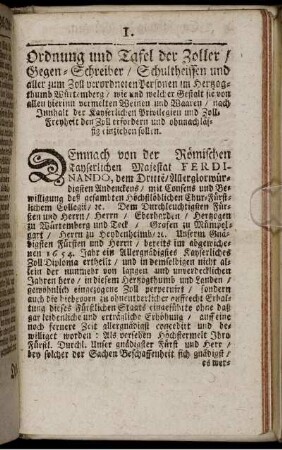 I.
Ordnung und Tafel der Zoller /
Gegen-Schreiber / Schultheissen und
aller zum Zoll verordneten Personen im Hertzog-
thumb Würtemberg / wie und welcher Gestalt je von
allen hierinn vermelten Weinen und Waaren / nach
Innhalt der Kayserlichen Privilegien und Zoll-
Freyheit den Zoll erfordern und ohnnachläs-
sig einziehen sollen.
DEmnach von der Römischen
Kayserlichen Majestät FERDI-
NANDO, dem Dritte / Allerglorwür-
digsten Andenckens / mit Consens und Be-
willigung deß gesambten Höchstlöblichen Chur-Fürst-
lichem Collegii / ꝛc. Dem Durchleuchtigsten Für-
sten und Herrn / Herrn / Eberharden / Hertzogen
zu Würtemberg und Teck / Grafen zu Mümpel-
gart / Herrn zu Heydenheimb / ꝛc. Unserm Gnä-
digsten Fürsten und Herrn / bereits im abgewiche-
nen 1654. Jahr ein Allergnädigstes Kayserliches
Zoll Diploma ertheilt / und in demselbigen nicht al-
lein der nunmehr von langen und unverdecklichen
Jahren hero / in diesem Hertzogthumb und Landen /
gewohnlich eingezogene Zoll perpetuirt / sondern
auch die hiebevorn zu ohnentberlicher auffrecht Erhal-
tung dieses Fürstlichen Staats eingeführte ohne daß
gar leidenliche und erträgliche Erhöhung / auff eine
noch fernere Zeit allergnädigst concedirt und be-
williget worden: Als vorseben Höchstermelt Ihro
Fürstl. Durchl. Unser gnädigster Fürst und Herr /
bey solcher der Sachen Beschaffenheit sich gnädigst /
es wer-